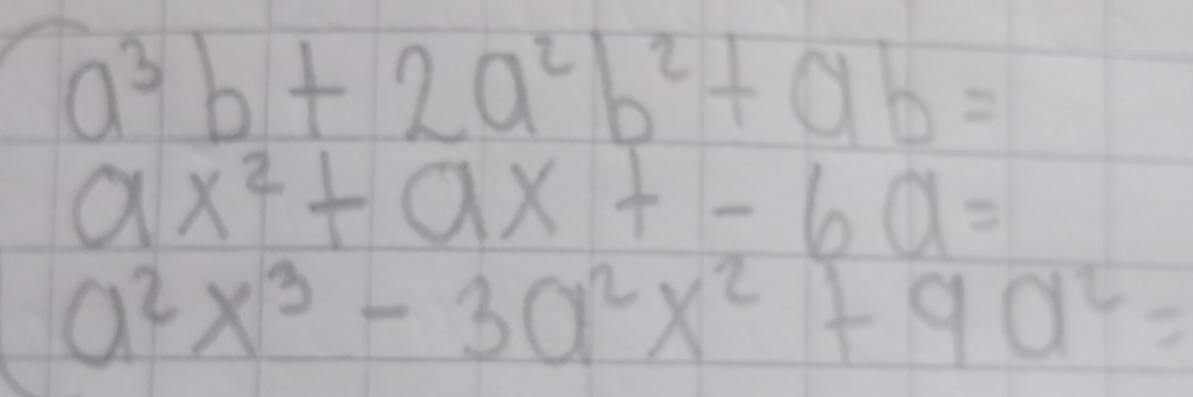 a³b + 2a²b² + ab =
ax² + ax + - 6a =
a²x³ - 3a²x² + 9a² =